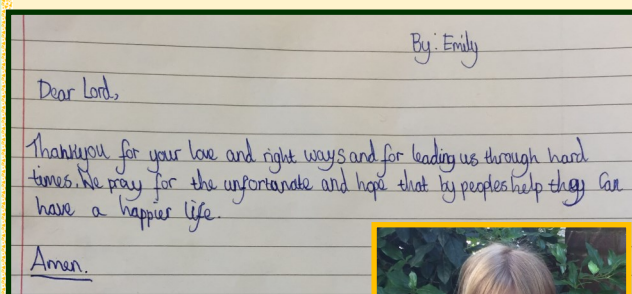 By: Emily
Dear Lord,
Thankyou for your love and right ways and for leading us through hard
times. We pray for the unfortanate and hope that by peoples help they can
have a happier life.
Amen.